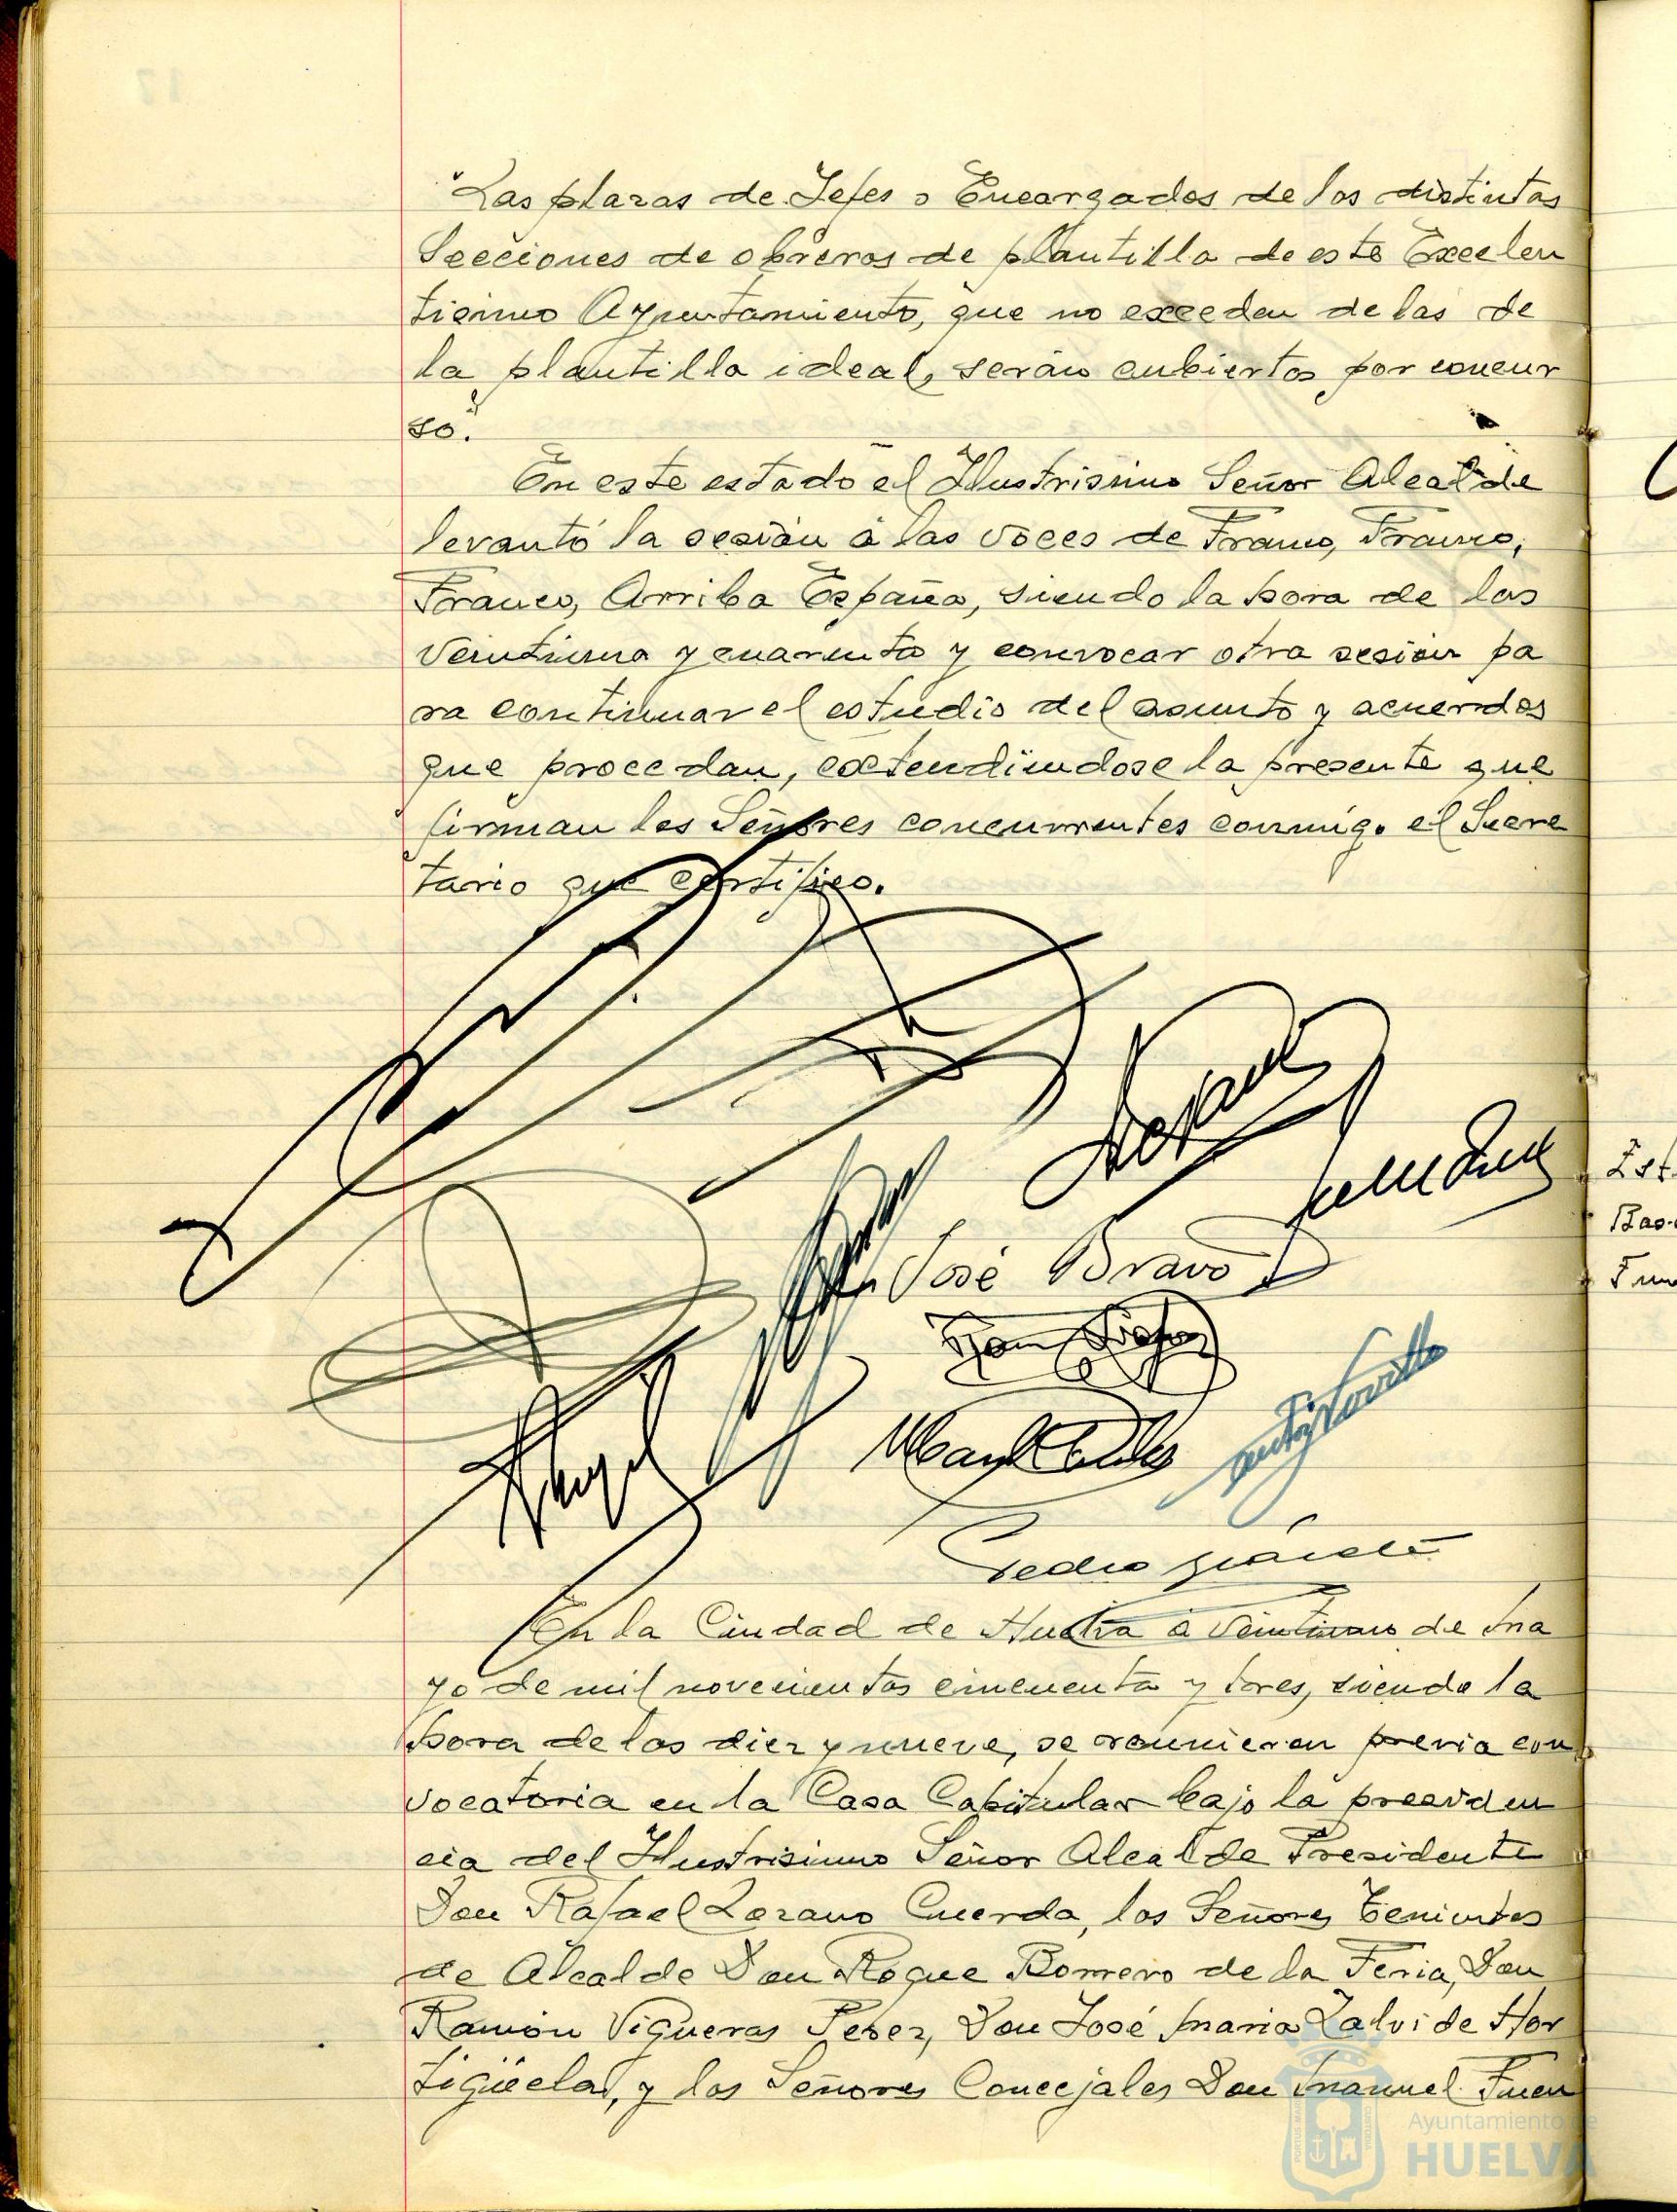 "Las plazas de Jefes o Encargados de las distintas
Secciones de obreros de plantilla de este Excelen
tisimo Ayuntamiento, que no excedan de las de
la plantilla ideal, serán cubiertas por concur
so."
En este estado el Ilustrisimo Señor Alcalde
levantó la sesión á las voces de Franco, Franco,
Franco, Arriba España, siendo la hora de las
veintiuna y cuarenta y convocar otra sesión pa
ra continuar el estudio del asunto y acuerdos
que procedan, extendiéndose la presente que
firman los Señores concurrentes conmigo el Secre
tario que certifico.
José Bravo
Pedro
En la Ciudad de Huelva a veintiuno de Ma
yo de mil novecientos cincuenta y tres, siendo la
hora de las diez y nueve, se reunieron previa con
vocatoria en la Casa Capitular bajo la presiden
cia del Ilustrisimo Señor Alcalde Presidente
Don Rafael Lozano Cuerda, los Señores Tenientes
de Alcalde Don Roque Borrero de la Feria, Don
Ramón Vigueras Perez, Don José Maria Zalvide Hor
tigüela, y los Señores Concejales Don Manuel Fuen
Ayuntamiento de
HUELVA